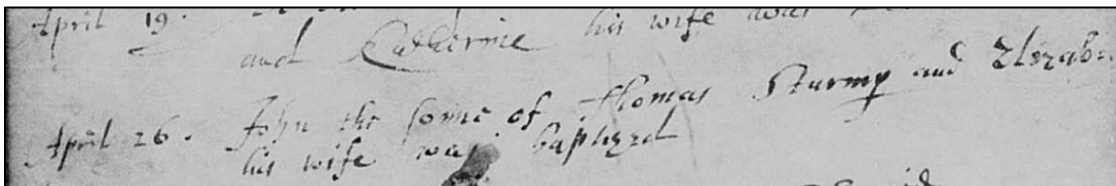 April 19.
and Katherine his wife was
April 26. John the sonne of Thomas Sturmy and Elizab:
his wife was baptized